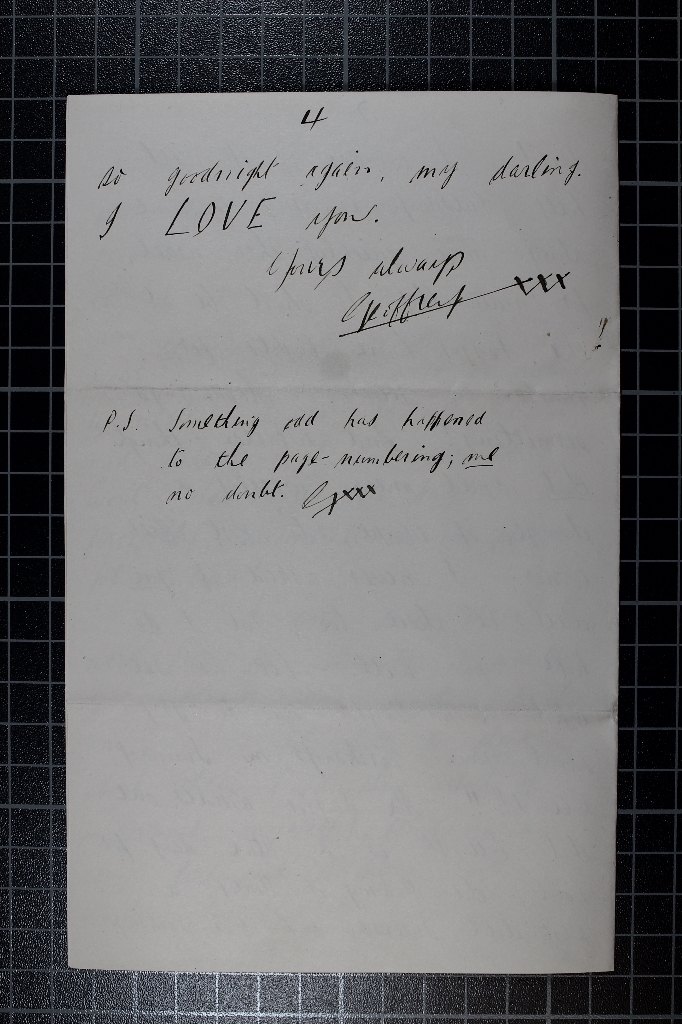 4
so goodnight again, my darling.
I LOVE you.
Yours always
Geoffrey xxx
P.S. Something odd has happened
to the page-numbering; me
no doubt. G xxx